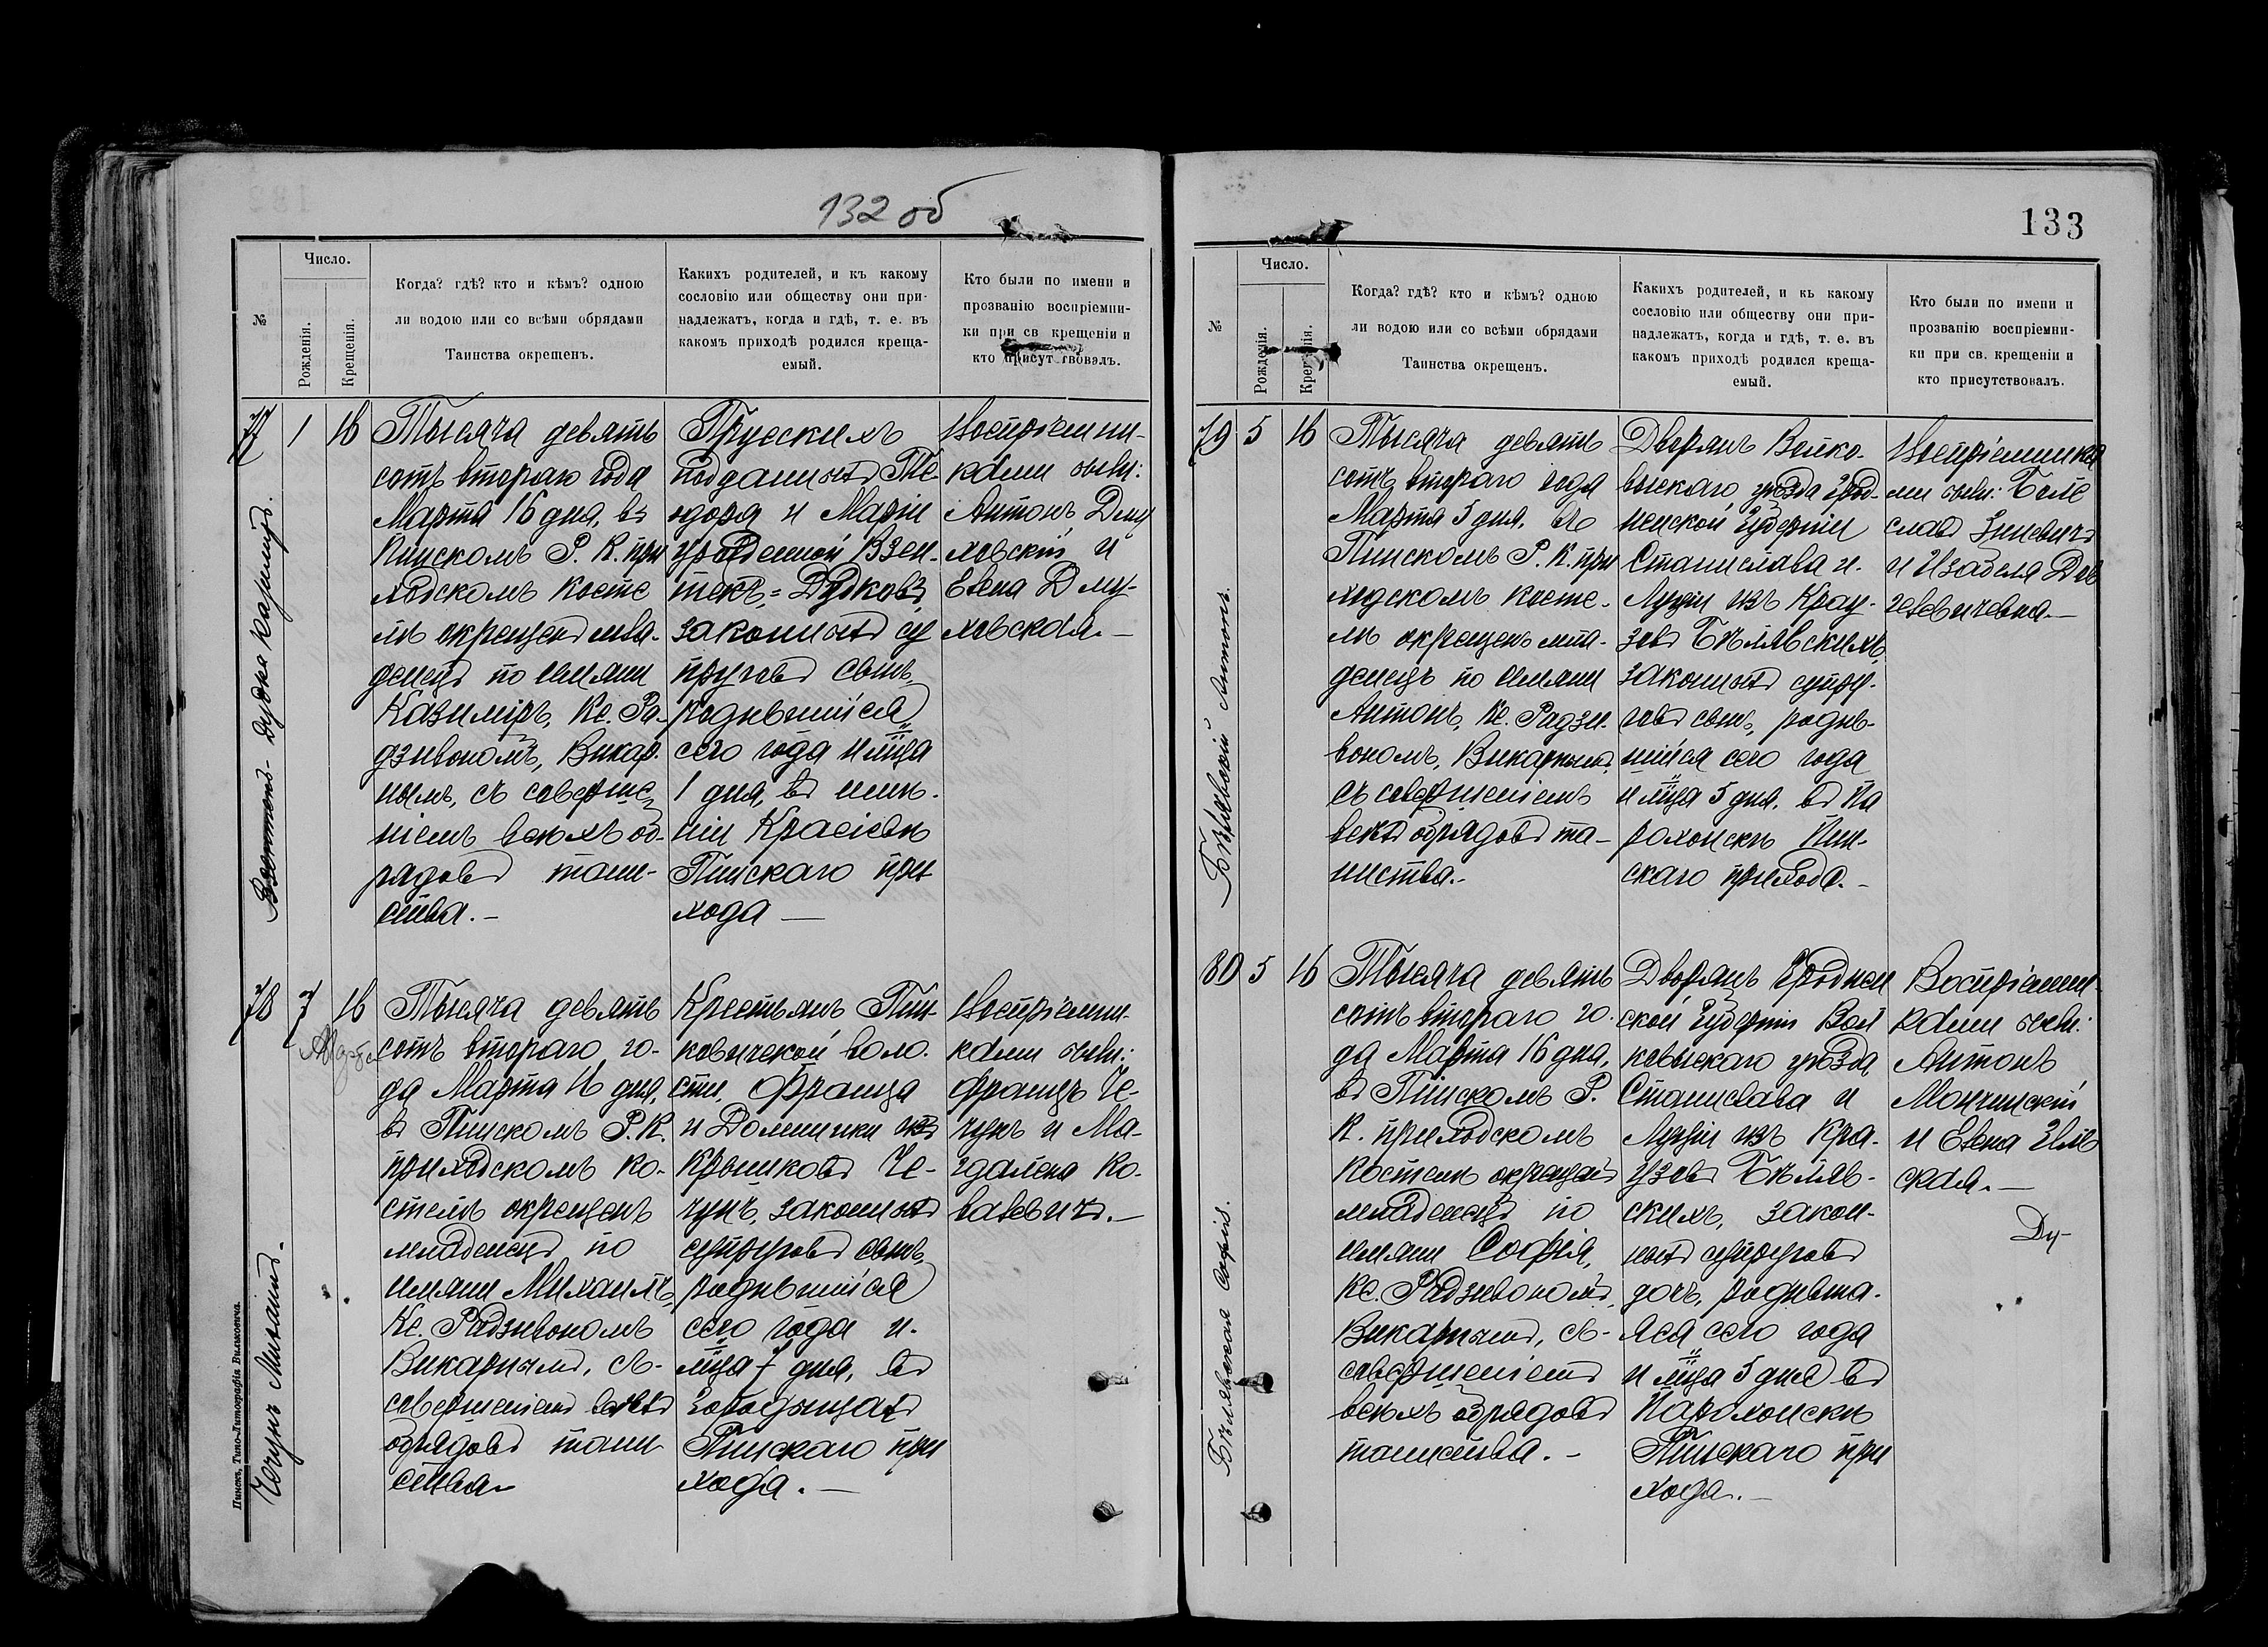 132 об
№
Число.
Рожденія.
Крещенія.
Когда? гдѣ? кто и кѣмъ? одною
ли водою или со всѣми обрядами
Таинства окрещенъ.
Какихъ родителей, и къ какому
сословію или обществу они при-
надлежатъ, когда и гдѣ, т. е. въ
какомъ приходѣ родился креща-
емый.
Кто были по имени и
прозванію воспріемни-
ки при св крещеніи и
кто присутствовалъ.
77
1
16
Дудка Казиміръ.
Тысяча девять
сотъ втораго года
Марта 16 дня, въ
Пинскомъ Р. К. при
ходскомъ косте
лѣ окрещенъ мла-
денецъ по имени
Казиміръ, Кс. Ра-
дзивономъ, Викар.
нымъ, съ соверше
ніемъ всѣхъ об-
рядовъ таин-
ства.-
Прускихъ
подданныхъ Те-
одора и Маріи
урожденной
законныхъ су
пруговъ сынъ,
родившійся
сего года и мца
1 дня, въ имѣ-
ніи
Пинскаго при
хода —
Воспріемни-
ками были:
Антонъ Дму
ховскій и
Елена Дму-
ховская.—
78
7
16
Марта
Чечунъ Михаилъ.
Тысяча девять
сотъ втораго го-
да Марта 16 дня,
въ Пинскомъ Р. К.
приходскомъ ко-
стелѣ окрещенъ
младенецъ по
имени Михаилъ,
Кс. Радзивономъ
Викарнымъ, съ-
совершеніемъ всѣхъ
обрядовъ таин
ства
Крестьянъ Пин-
ковичской воло-
сти, Франца
и Доминики изъ
Крыниковъ Че-
чунъ, законныхъ
супруговъ сынъ,
родившійся
сего года и-
мца 7 дня, въ
Городищахъ
Пинскаго при
хода.—
Воспріемни-
ками были:
Францъ Че-
чунъ и Ма-
гдалена Ко-
валевичъ.—
Пинскъ, Типо-Литографія Вилковича.
133
№
Число.
Рожденія.
Крещенія.
Когда? гдѣ? кто и кѣмъ? одною
ли водою или со всѣми обрядами
Таинства окрещенъ.
Какихъ родителей, и къ какому
сословію или обществу они при-
надлежатъ, когда и гдѣ, т. е. въ
какомъ приходѣ родился креща-
емый.
Кто были по имени и
прозванію воспріемни-
ки при св. крещеніи и
кто присутствовалъ.
79
5
16
Бѣлявскій Антонъ.
Тысяча девять
сотъ втораго года
Марта 5 дня, въ
Пинскомъ Р. К. при
ходскомъ косте-
лѣ окрещенъ мла-
денецъ по имени
Антонъ, Кс. Радзи-
вономъ, Викарнымъ,
съ совершеніемъ
всѣхъ обрядовъ та-
инства.-
Дворянъ Волко-
выскаго уѣзда Грод-
ненской Губерніи
Станислава и-
Луціи изъ Крау-
зовъ Бѣлявскихъ,
законныхъ супру-
говъ сынъ, родив-
шійся сего года
и мца 5 дня, въ Па
рохонскѣ Пин-
скаго прихода.-
Воспріемника
ми были: Боле
славъ Зиневичъ
и Изабела
80
5
16
Бѣлявская Софія.
Тысяча девять
сотъ втораго го-
да Марта 16 дня,
въ Пинскомъ Р.
К. приходскомъ
костелѣ окрещенъ
младенецъ по
имени Софія,
Кс. Радзивономъ,
Викарнымъ, съ-
совершеніемъ
всѣхъ обрядовъ
таинства.-
Дворянъ Гроднен
ской Губерніи Вол
ковыскаго уѣзда
Станислава и
Луціи изъ Кра-
узовъ Бѣляв-
скихъ, закон-
ныхъ супруговъ
дочь, родивша-
яся сего года
и мца 5 дня въ
Парохонскѣ
Пинскаго при
хода.—
Воспріемни-
ками были:
Антонъ
Мончинскій
и Елена
ская.—
Ду-